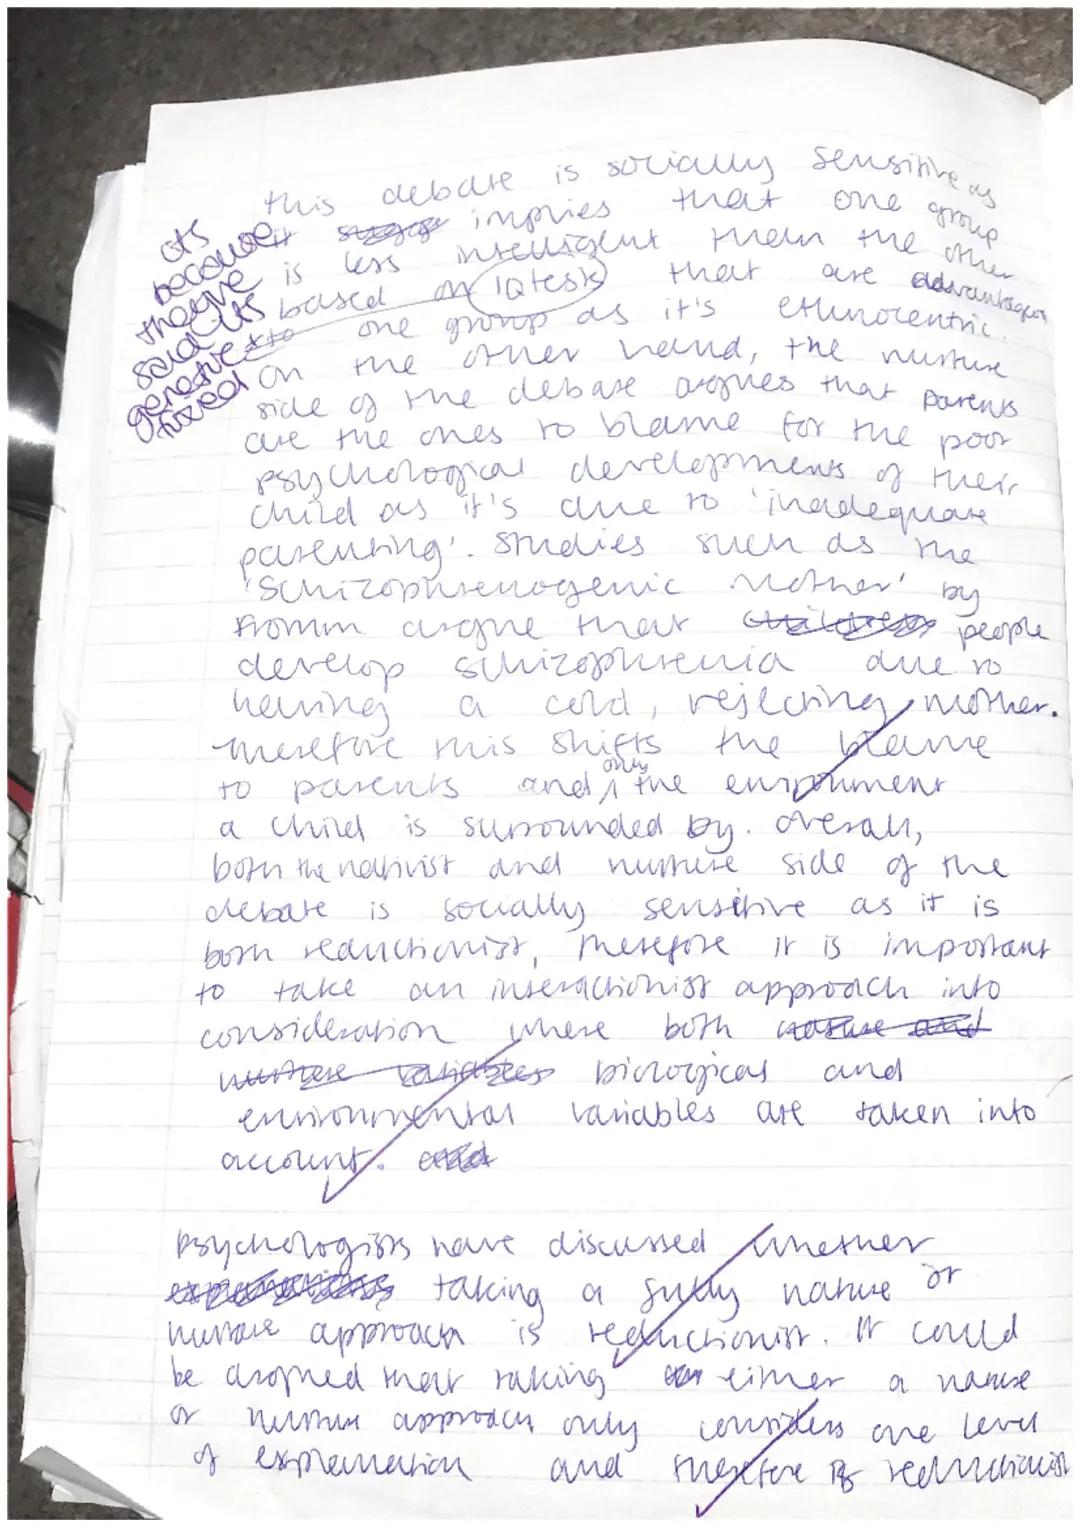 this debate is socially sensitive as
it implies that one group
is less intelligent than the other
based on IQ tests that are advantageous
one group as it's ethnocentric.
its
because
they've
said its
genetic
fixed
to
On the other hand, the nurture
side of the debate argues that parents
are the ones to blame for the poor
psychological developments of their
child as it's due to 'inadequate
parenting'. Studies such as the
'Schizophrenogenic Mother' by
Fromm argue that people
develop schizophrenia due to
having a cold, rejecting mother.
Therefore this shifts the blame
to parents and only the environment
a child is surrounded by. Overall,
both the nativist and nurture side of the
debate is socially sensitive as it is
both reductionist, therefore it is important
to take an interactionist approach into
consideration where both nature and
nurture variables biological and
environmental variables are taken into
account.
Psychologists have discussed whether
taking a fully nature or
nurture approach is reductionist. It could
be argued that taking either a nature
or nurture approach only considers one level
of explanation and therefore is reductionist